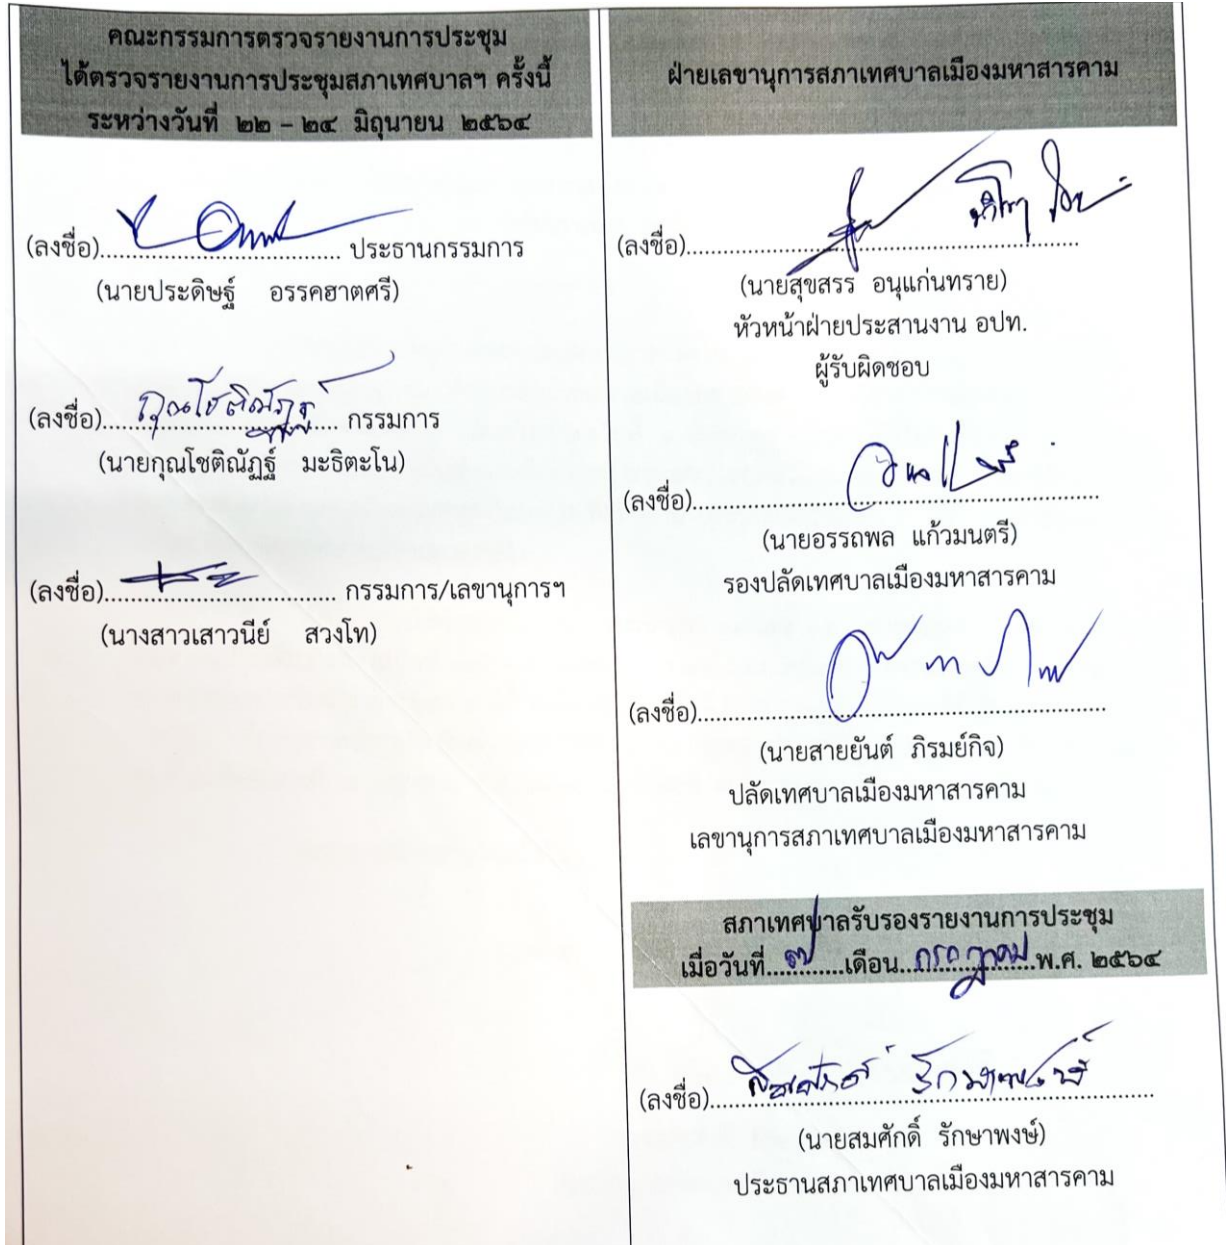 คณะกรรมการตรวจรายงานการประชุม
ได้ตรวจรายงานการประชุมสภาเทศบาลฯ ครั้งนี้
ระหว่างวันที่ ๒๒ – ๒๔ มิถุนายน ๒๕๖๔
(ลงชื่อ)........................................ ประธานกรรมการ
(นายประดิษฐ์ อรรคฮาตศรี)
(ลงชื่อ)........................................ กรรมการ
(นายกุณโชติณัฏฐ์ มะธิตะโน)
(ลงชื่อ)........................................ กรรมการ/เลขานุการฯ
(นางสาวเสาวนีย์ สวงโท)
ฝ่ายเลขานุการสภาเทศบาลเมืองมหาสารคาม
(ลงชื่อ)................................................................
(นายสุขสรร อนุแก่นทราย)
หัวหน้าฝ่ายประสานงาน อปท.
ผู้รับผิดชอบ
(ลงชื่อ)................................................................
(นายอรรถพล แก้วมนตรี)
รองปลัดเทศบาลเมืองมหาสารคาม
(ลงชื่อ)................................................................
(นายสายยันต์ ภิรมย์กิจ)
ปลัดเทศบาลเมืองมหาสารคาม
เลขานุการสภาเทศบาลเมืองมหาสารคาม
สภาเทศบาลรับรองรายงานการประชุม
เมื่อวันที่....๗....เดือน....กรกฎาคม....พ.ศ. ๒๕๖๔
(ลงชื่อ) สมศักดิ์ รักษาพงษ์
(นายสมศักดิ์ รักษาพงษ์)
ประธานสภาเทศบาลเมืองมหาสารคาม